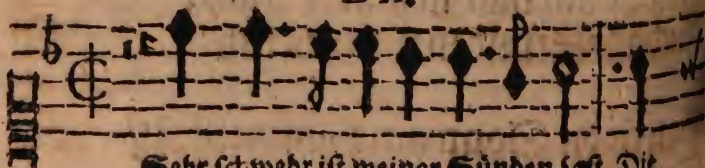 Sehr schwehr ist meiner Sünden last Di